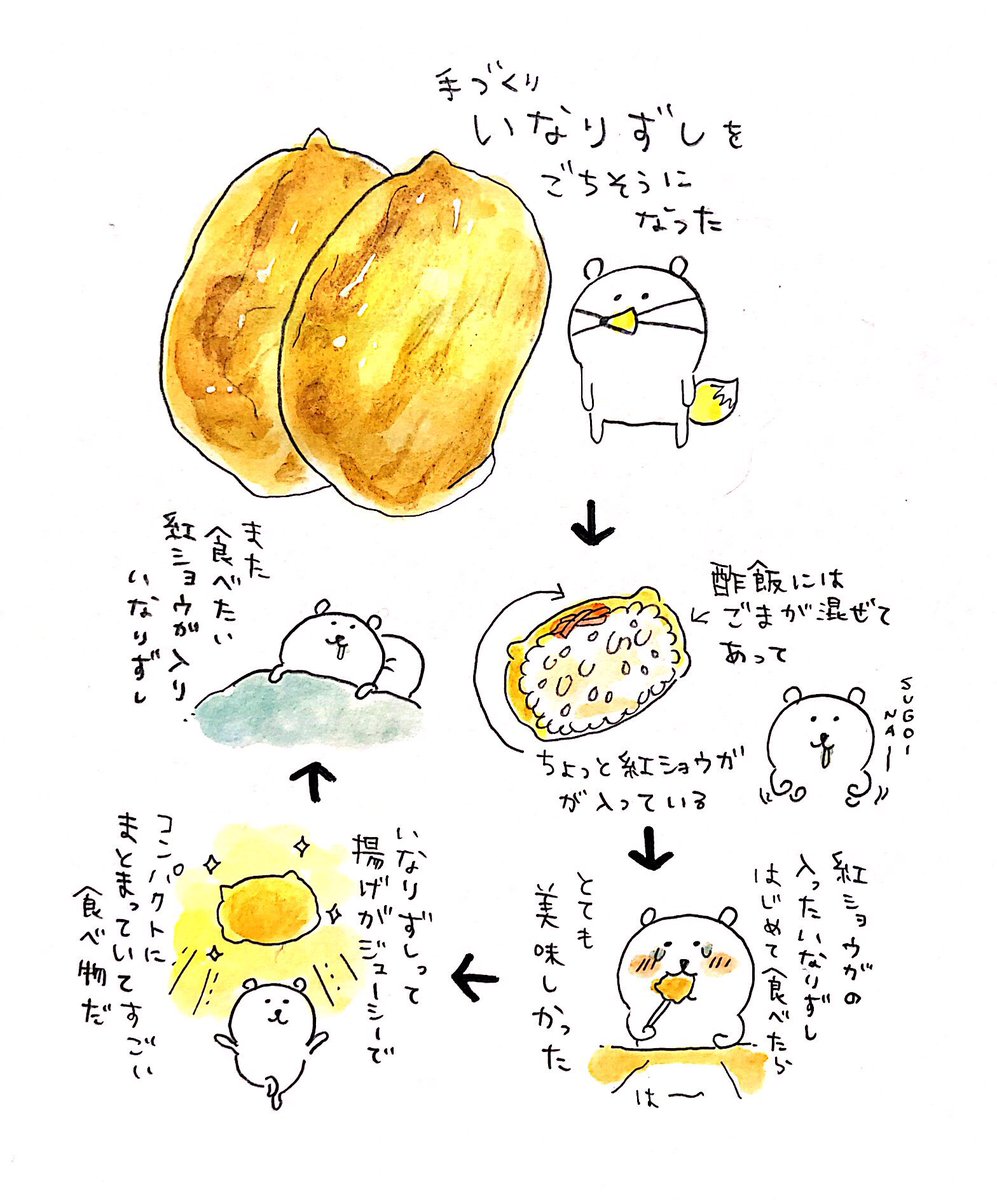 手づくり
いなりずしを
ごちそうに
なった
酢飯には
ごまが混ぜて
あって
ちょっと紅ショウガ
が入っている
SUGOI
NA—
紅ショウガの
入ったいなりずし
はじめて食べたら
とても
美味しかった
は〜
いなりずしって
揚げがジューシーで
コンパクトに
まとまっていてすごい
食べ物だ
また
食べたい
紅ショウガ入り
いなりずし